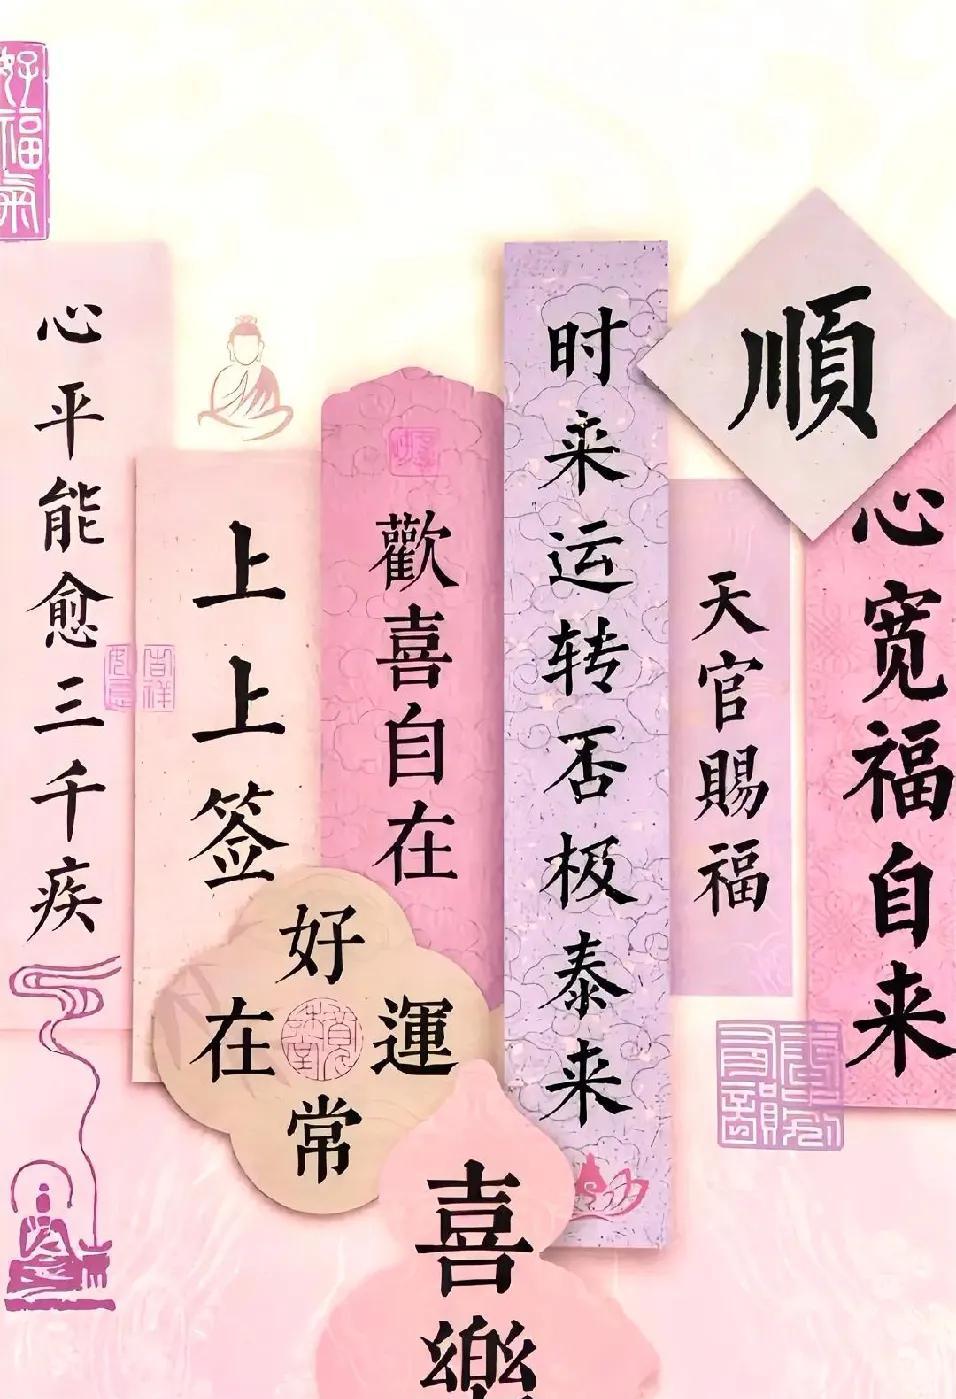 好福气
心平能愈三千疾
上上签
歡喜自在
时来运转否极泰来
順
天官賜福
心宽福自来
好運常在
喜樂
吉祥